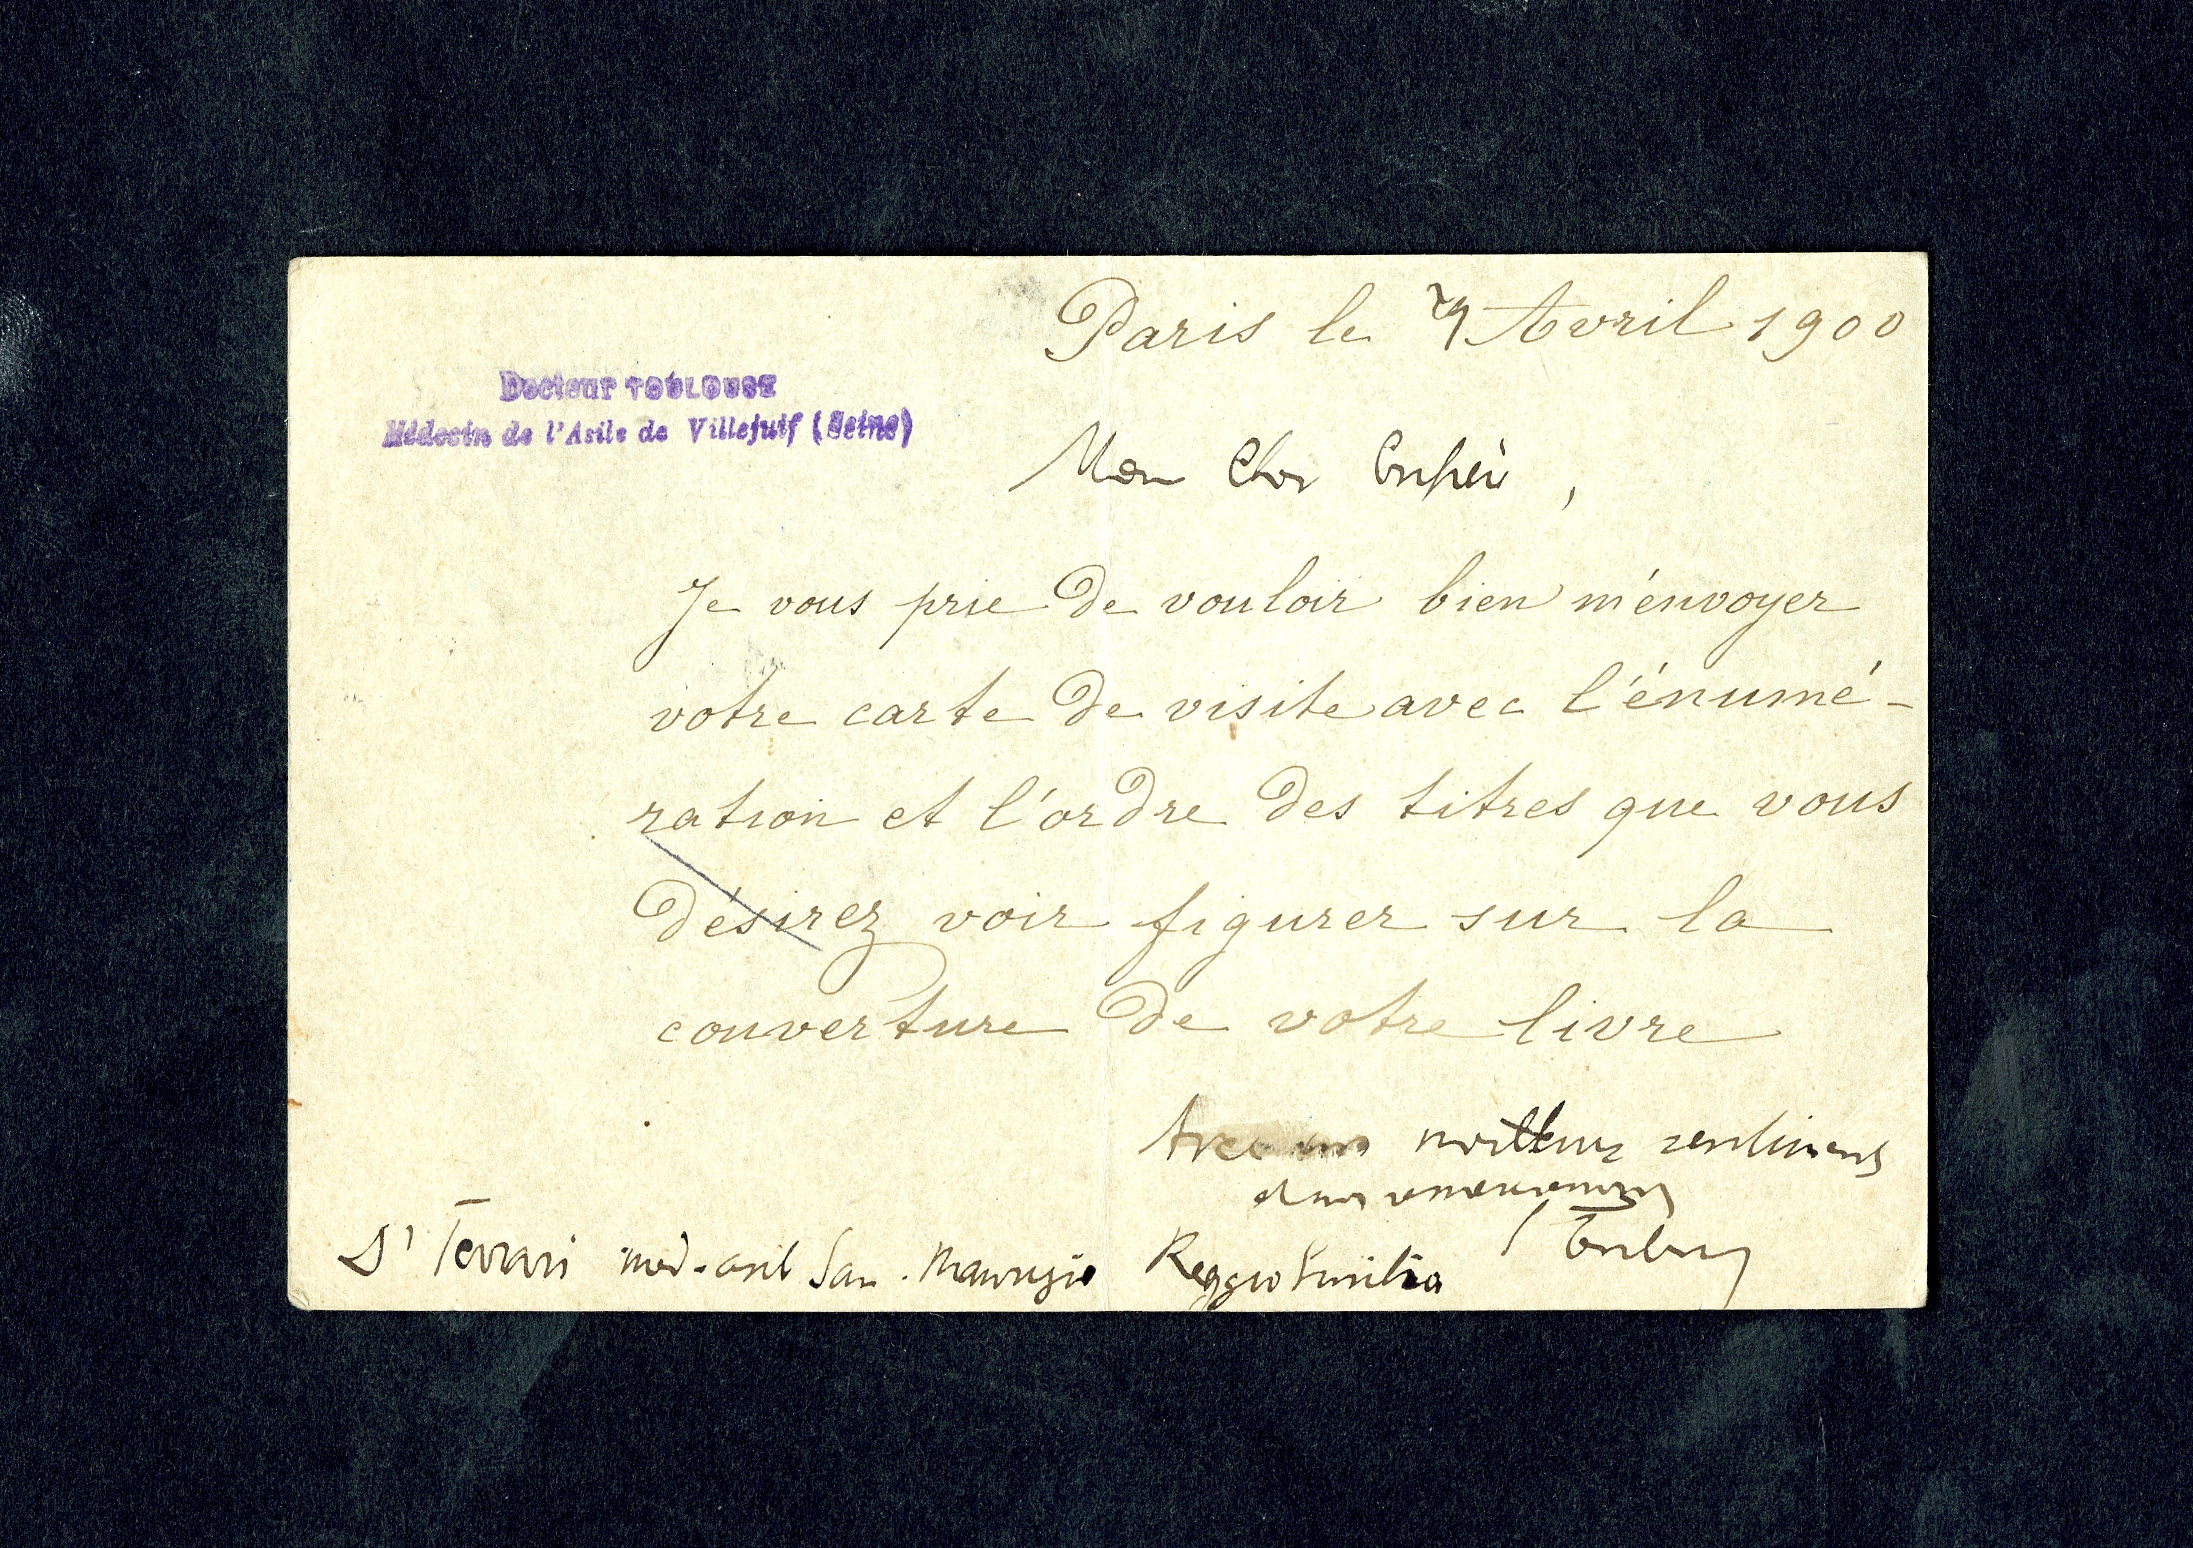 Paris le 29 Avril 1900
Docteur TOULOUSE
Médecin de l'Asile de Villejuif (Seine)
Mon Cher Confrère,
Je vous prie de vouloir bien m'envoyer
votre carte de visite avec l'énumé-
ration et l'ordre des titres que vous
désirez voir figurer sur la
couverture de votre livre
Avec mes meilleurs sentiments
et mes remerciements
Toulouse
Dr Ferrari méd. asil San. Maurizio Reggio Emilia